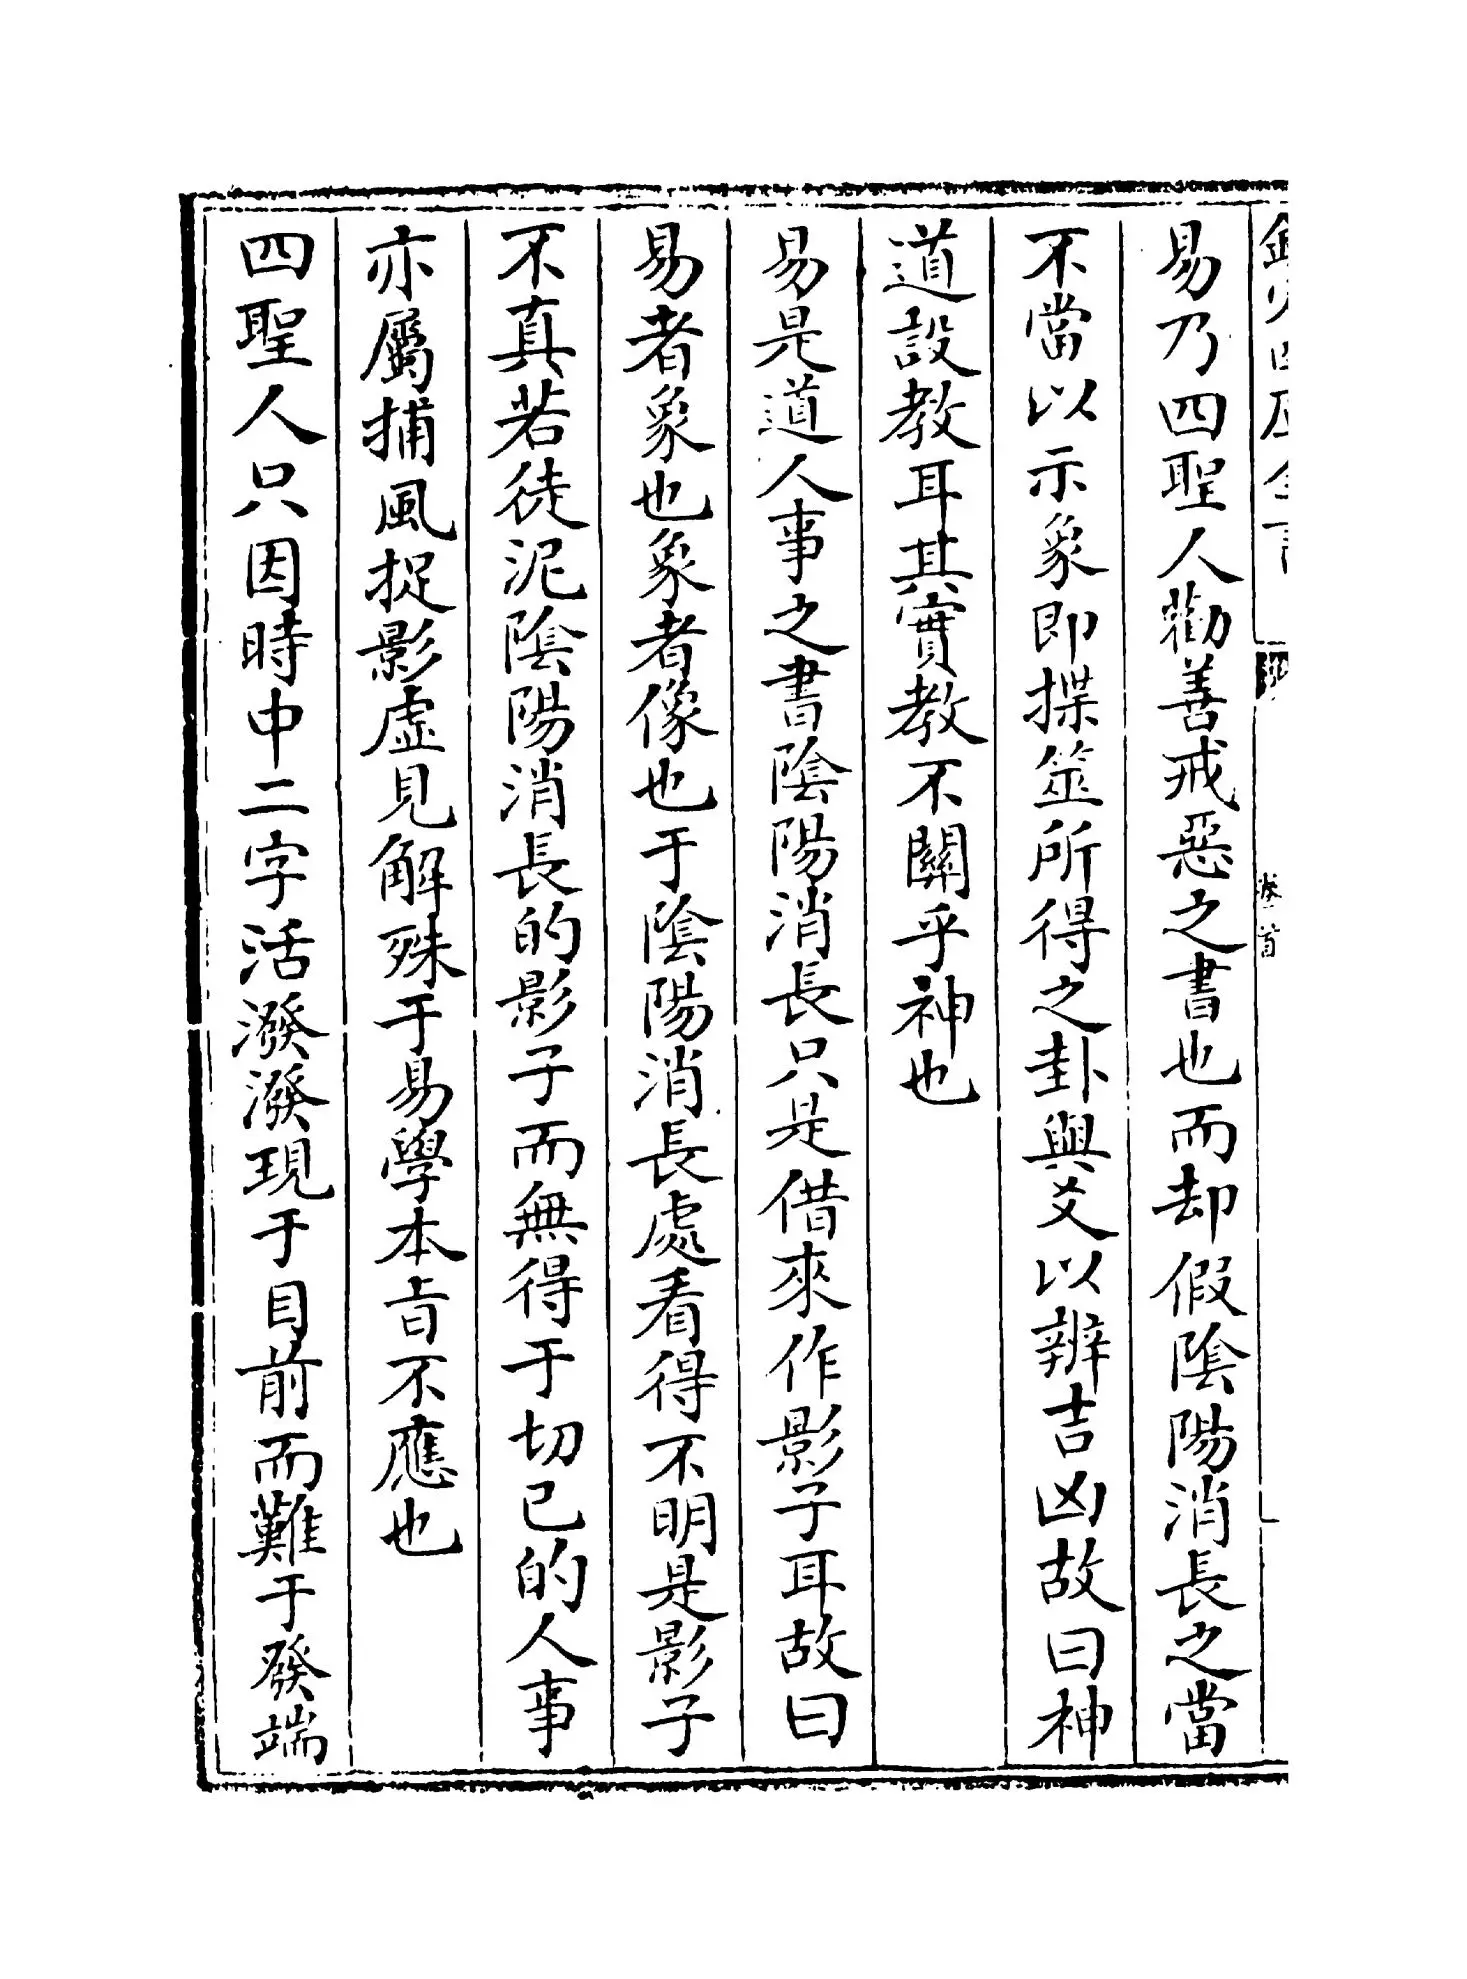 易乃四聖人勸善戒惡之書也而却假陰陽消長之當
不當以示象即揲筮所得之卦與爻以辨吉凶故曰神
道設教耳其實教不關乎神也
易是道人事之書陰陽消長只是借來作影子耳故曰
易者象也象者像也于陰陽消長處看得不明是影子
不真若徒泥陰陽消長的影子而無得于切已的人事
亦屬捕風捉影虛見解殊于易學本旨不應也
四聖人只因時中二字活潑潑現于目前而難于發端
卷首